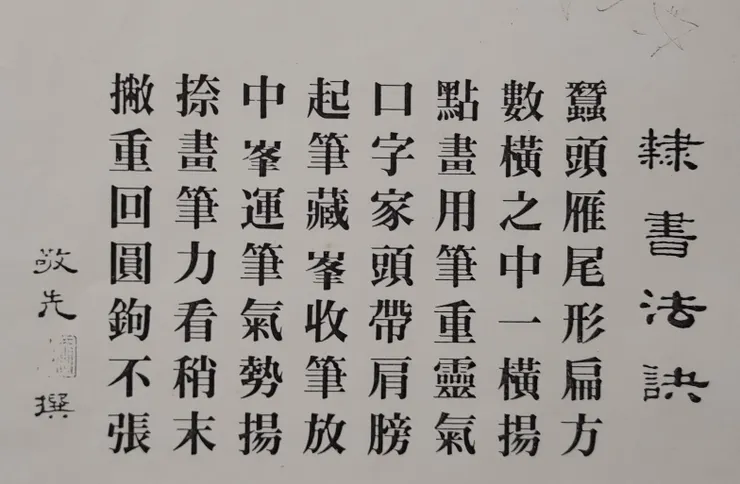 隸書法訣
蠶頭雁尾形扁方
數橫之中一橫揚
點畫用筆重靈氣
口字家頭帶肩膀
起筆藏峯收筆放
中峯運筆氣勢揚
捺畫筆力看稍末
撇重回圓鉤不張
敬先 撰